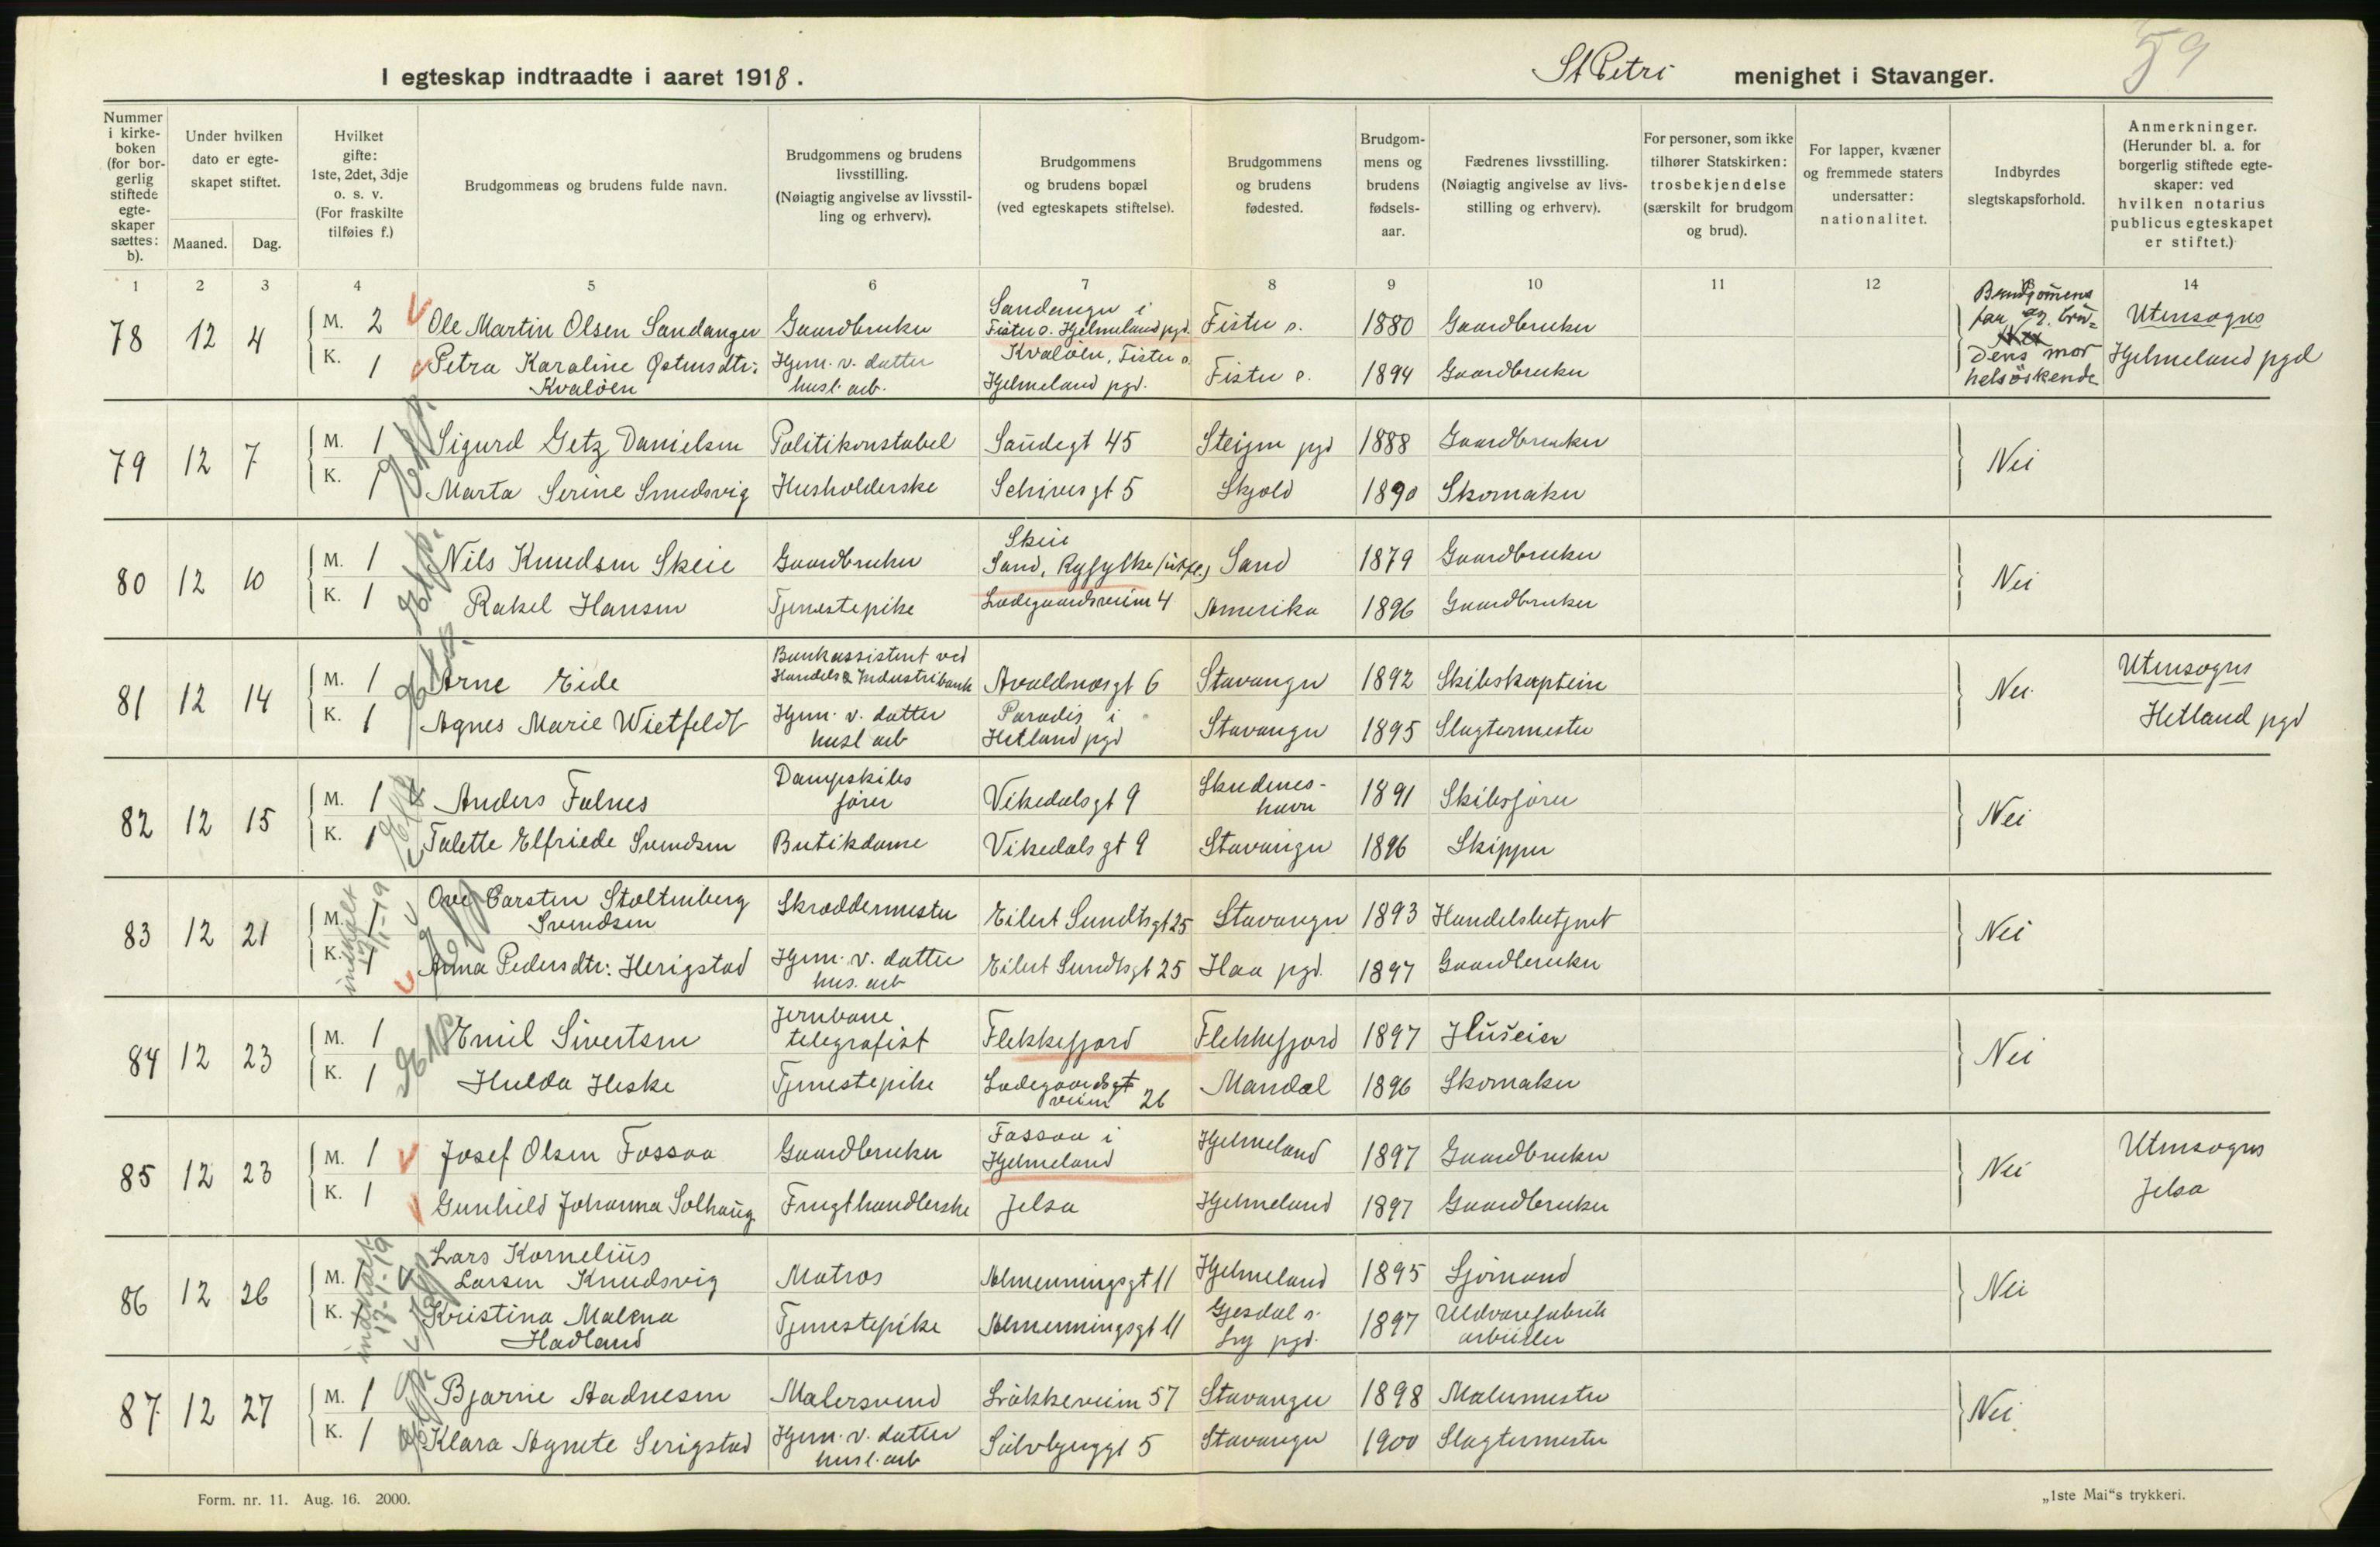 59
I egteskap indtraadte i aaret 1918. St Petri menighet i Stavanger.
Nummer i kirkeboken (for borgerlig stiftede egteskaper sættes: b).
Under hvilken dato er egteskapet stiftet.
Maaned. Dag.
Hvilket gifte: 1ste, 2det, 3dje o. s. v. (For fraskilte tilføies f.)
Brudgommens og brudens fulde navn.
Brudgommens og brudens livsstilling. (Nøiagtig angivelse av livsstilling og erhverv).
Brudgommens og brudens bopæl (ved egteskapets stiftelse).
Brudgommens og brudens fødested.
Brudgommens og brudens fødselsaar.
Fædrenes livsstilling. (Nøiagtig angivelse av livsstilling og erhverv).
For personer, som ikke tilhører Statskirken: trosbekjendelse (særskilt for brudgom og brud).
For lapper, kvæner og fremmede staters undersatter: nationalitet.
Indbyrdes slegtskapsforhold.
Anmerkninger. (Herunder bl. a. for borgerlig stiftede egteskaper: ved hvilken notarius publicus egteskapet er stiftet.)
1 2 3 4 5 6 7 8 9 10 11 12 14
78 12 4 M. 2 Ole Martin Olsen Sandanger Gaardbruker Sandanger i Fister s. Hjelmeland pgd. Fister s. 1880 Gaardbruker Brudgommens far og brudens mor helsøskende Utensogns Hjelmeland pgd
K. 1 Petra Karoline Østensdtr: Kvaløen Hjem. v. datter husl. arb. Kvaløen, Fister s. Hjelmeland pgd. Fister s. 1894 Gaardbruker
79 12 7 M. 1 Sigurd Getz Danielsen Politikonstabel Saudegt 45 Steigen pgd 1888 Gaardbruker Nei
K. 1 Marta Serine Smedsvig Husholderske Schivesgt 5 Skjold 1890 Skomaker
80 12 10 M. 1 Nils Knudsen Skeie Gaardbruker Skeie Sand, Ryfylke Sand 1879 Gaardbruker Nei
K. 1 Rakel Hansen Tjenestepike Ladegaardsveien 4 Amerika 1896 Gaardbruker
81 12 14 M. 1 Arne Eide Bankassistent ved Handels & Industribank Avaldsnesgt 6 Stavanger 1892 Skibskaptein Nei Utensogns Hetland pgd
K. 1 Agnes Marie Wietfeldt Hjem. v. datter husl arb Paradis i Hetland pgd Stavanger 1895 Slagtermester
82 12 15 M. 1 Anders Falnes Dampskibsfører Vikedalsgt 9 Skudeneshavn 1891 Skibsfører Nei
K. 1 Talette Elfriede Svendsen Butikdame Vikedalsgt 9 Stavanger 1896 Skipper
83 12 21 M. 1 Ove Carsten Stoltenberg Svendsen Skræddermester Eilert Sundtsgt 25 Stavanger 1893 Handelsbetjent Nei
K. 1 Anna Pedersdtr: Herigstad Hjem. v. datter hus. arb Eilert Sundtsgt 25 Haa pgd. 1897 Gaardbruker
84 12 23 M. 1 Emil Sivertsen Jernbanetelegrafist Flekkefjord Flekkefjord 1897 Huseier Nei
K. 1 Hulda Heske Tjenestepike Ladegaardsveien 26 Mandal 1896 Skomaker
85 12 23 M. 1 Josef Olsen Fossaa Gaardbruker Fossaa i Hjelmeland Hjelmeland 1897 Gaardbruker Nei Utensogns Jelsa
K. 1 Gunhild Johanna Solhaug Frugthandlerske Jelsa Hjelmeland 1897 Gaardbruker
86 12 26 M. 1 Lars Kornelius Larsen Knudsvig Matros Almenningsgt 11 Hjelmeland 1895 Sjømand Nei
K. 1 Kristina Malena Hadland Tjenestepike Almenningsgt 11 Gjesdal s. Ly pgd. 1897 Uldvarefabrik arbeider
87 12 27 M. 1 Bjarne Aadnesen Malersvend Løkkeveien 57 Stavanger 1898 Malermester Nei
K. 1 Klara Agnete Serigstad Hjem. v. datter husl. arb Sølvbergsgt 5 Stavanger 1900 Slagtermester
Form. nr. 11. Aug. 16. 2000.
„1ste Mai“s trykkeri.